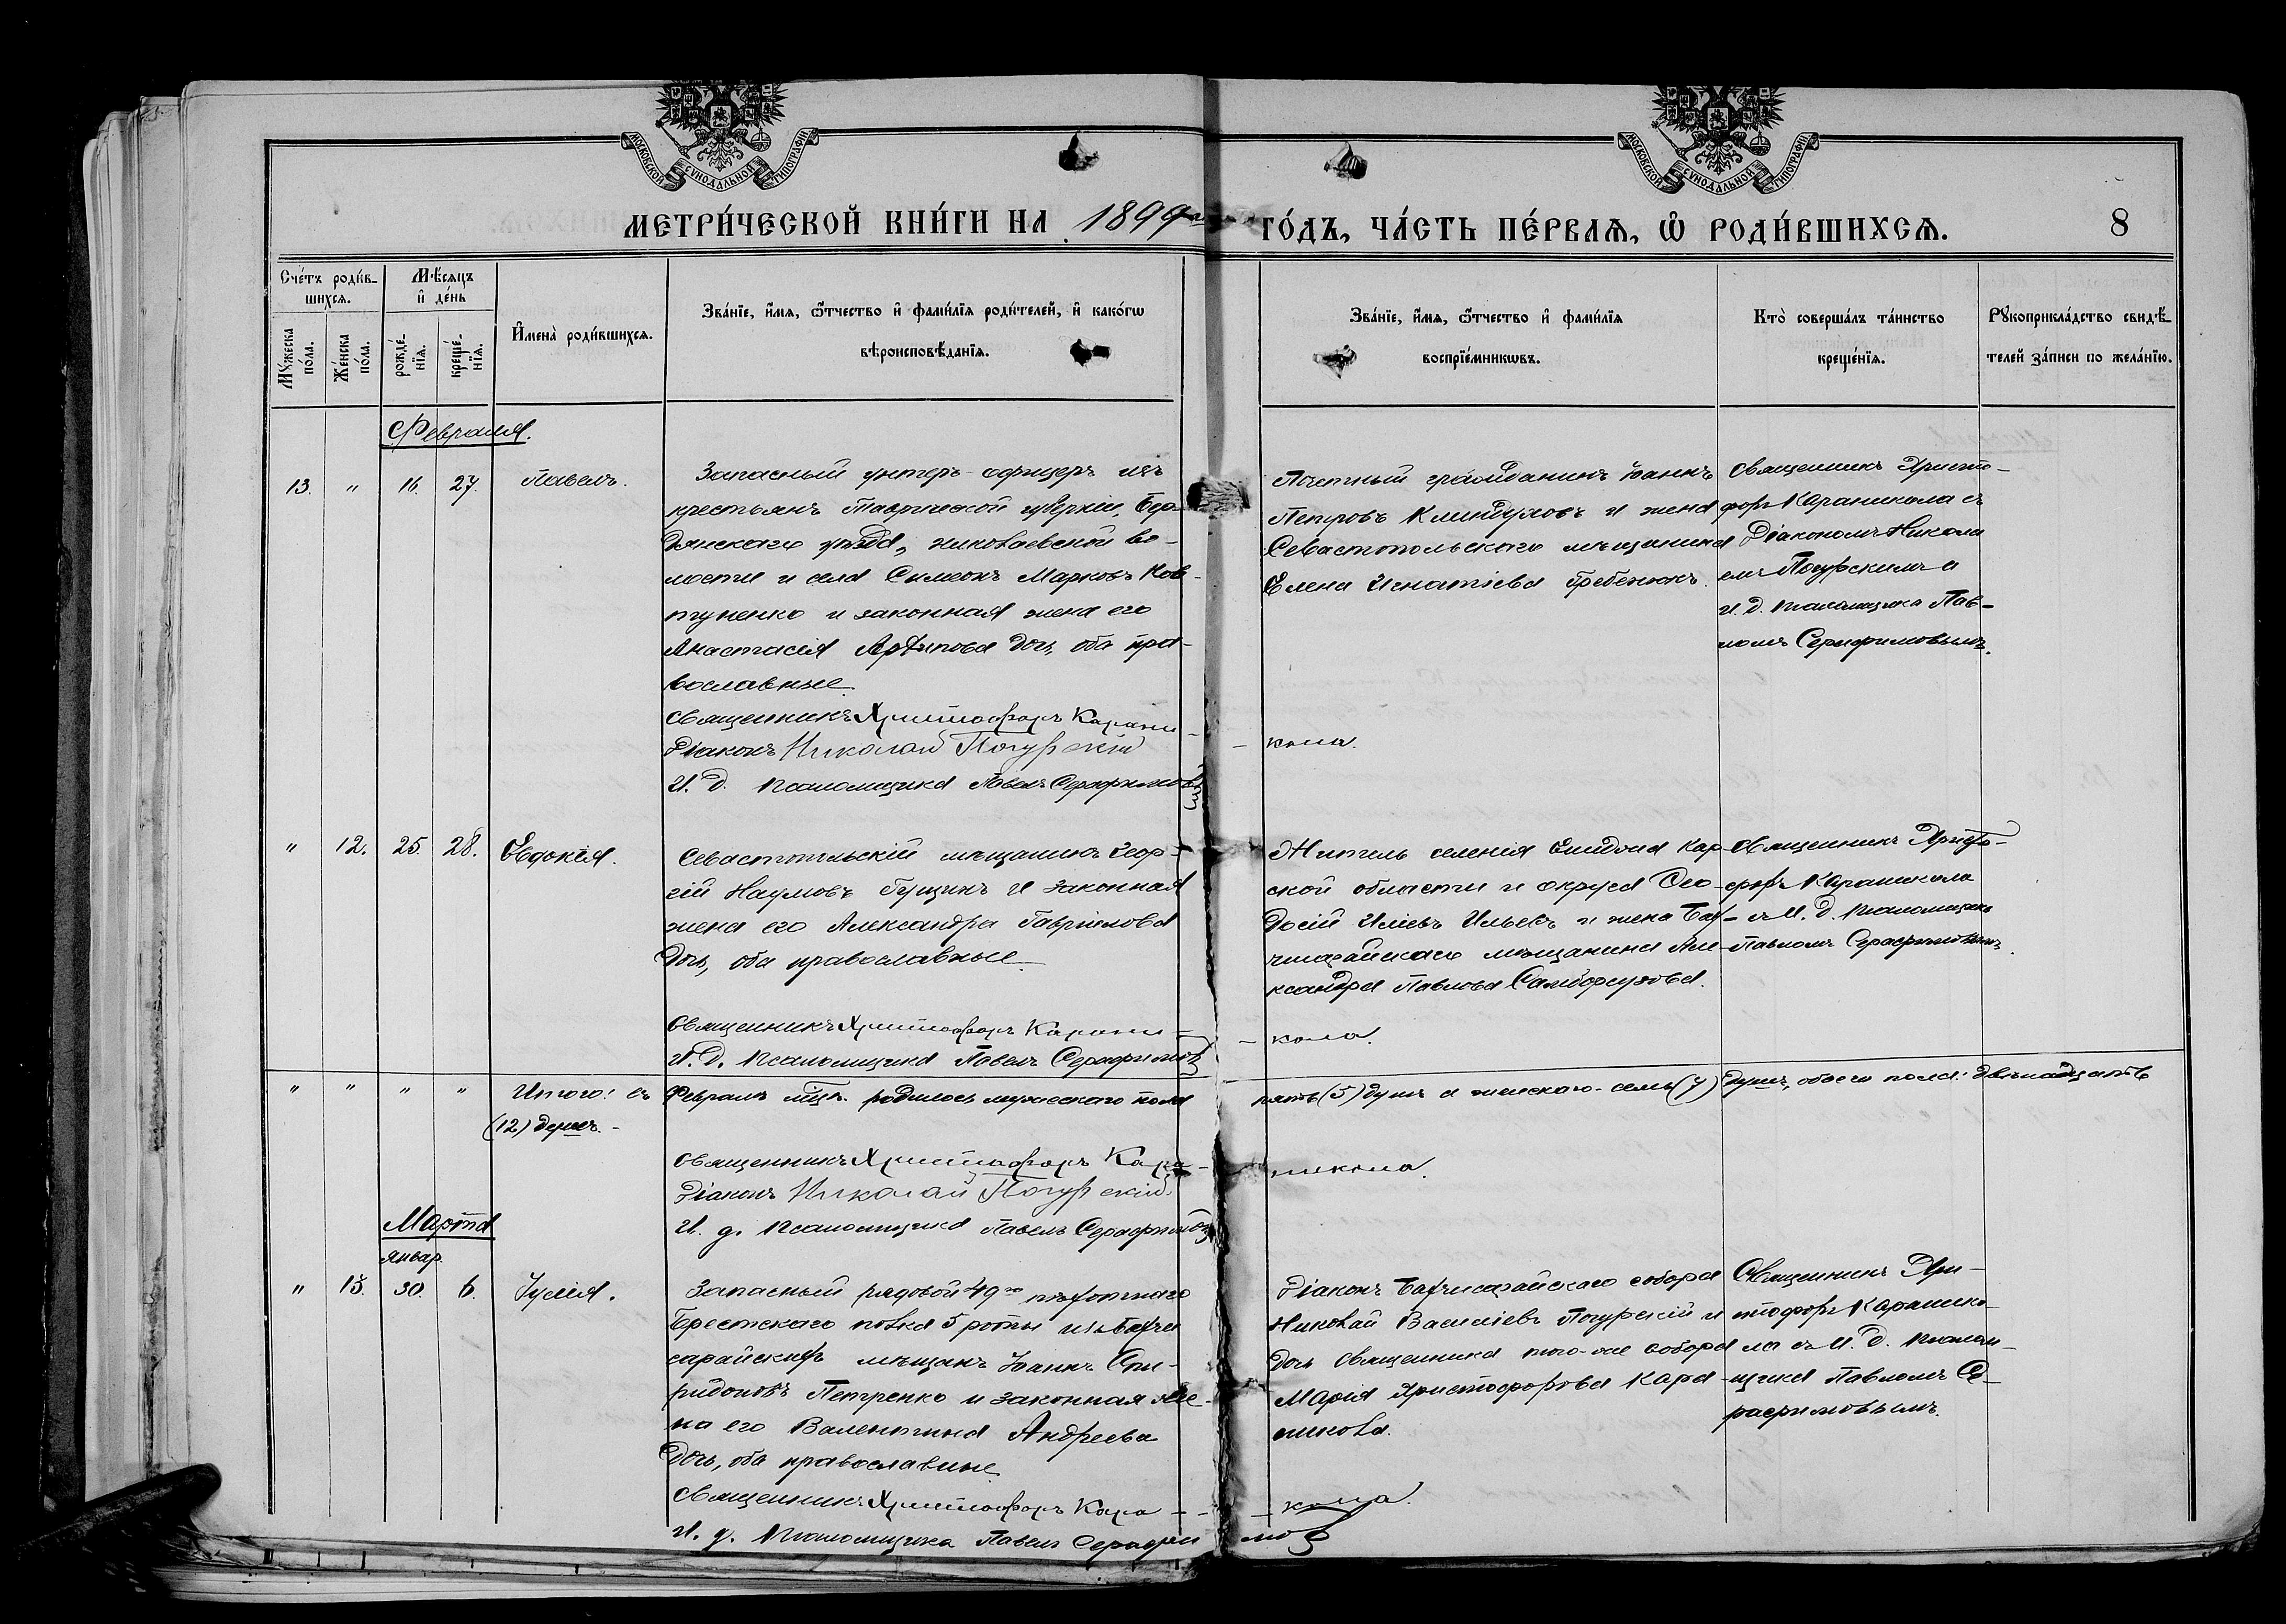 МОСКОВСКОЙ СУНОДАЛЬНОЙ ТИПОГРАФІИ
МОСКОВСКОЙ СУНОДАЛЬНОЙ ТИПОГРАФІИ
МЕТРИ́ЧЕСКОЙ КНИ́ГИ НА 1899й ГО́ДЪ, ЧА́СТЬ ПЕ́РВАѦ, Ѡ҆ РОДИ́ВШИХСѦ. 8
Сче́тъ роди́вшихсѧ.
Мѣ́сѧцъ и҆ де́нь
Мꙋ́жеска по́ла.
Же́нска по́ла.
рожде́нїѧ.
креще́нїѧ.
И҆мена̀ роди́вшихсѧ.
Зва́нїе, и҆́мѧ, ѻ҆́тчество и҆ фами́лїѧ роди́телей, и҆ како́гѡ
вѣроисповѣ́данїѧ.
Зва́нїе, и҆́мѧ, ѻ҆́тчество и҆ фами́лїѧ
воспрїе́мникѡвъ.
Кто̀ соверша́лъ та́инство
креще́нїѧ.
Рꙋкоприкла́дство свидѣ́телей за́писи по жела́нїю.
Февраля.
13. " 16. 27. Павелъ.
Запасный унтеръ-офицеръ изъ
крестьянъ Таврической губерніи, Бер-
дянскаго уѣзда, Николаевской во-
лости и села Сѵмеонъ Марковъ Ков-
туненко и законная жена его
Анастасія Архипова дочь, оба пра-
вославные.
Священникъ Христофоръ Карани-
- кола.
Діаконъ Николай Погурскій
И. д. псаломщика Павелъ Серафимовъ
Почетный гражданинъ Іоаннъ
Петровъ и жена
Севастопольскаго мѣщанина
Елена Игнатіева Гребенюкъ.
Священникъ Христо-
форъ Караникола съ
Діакономъ Никола
емъ Погурскимъ и
И. д. псаломщика Пав-
ломъ Серафимовымъ.
" 12. 25. 28. Евдокія.
Севастопольскій мѣщанинъ Геор-
гій Наумовъ Гущинъ и законная
жена его Александра Гавріилова
дочь, оба православные.
Священникъ Христофоръ Карани-
- кола.
И. д. псаломщика Павелъ Серафимовъ
Житель селенія Кар-
ской области и округа Ѳео-
досій Иліевъ Ильевъ и жена Бах-
чисарайскаго мѣщанина Але-
ксандра Павлова
Священникъ Христо-
форъ Караникола
съ И. д. псаломщика
Павломъ Серафимовымъ.
" " " " Итого: въ Февралѣ мцѣ. родилось мужескаго пола пять (5) душъ а женскаго-семь (7) душъ, обоего пола: двѣнадцать
(12) душъ.-
Священникъ Христофоръ Кара-
никола.
Діаконъ Николай Погурскій.
И. д. псаломщика Павелъ Серафимовъ
Марта
январ.
" 13. 30. 6. Іулія.
Запасный рядовой 49го пѣхотнаго
Брестскаго полка 5 роты изъ Бахчи
сарайскихъ мѣщанъ Іоаннъ Спи-
ридоновъ Петренко и законная же-
на его Валентина Андреева
дочь, оба православные.
Священникъ Христофоръ Кара-
- кола.
И. д. псаломщика Павелъ Серафимовъ
Діаконъ Бахчисарайскаго собора
Николай Василіевъ Погурскій и
дочь священника того-же собора
Марія Христофорова Кара-
никола.
Священникъ Хри-
стофоръ Карани́ко-
ла съ И. д. псалом-
щика Павломъ Се-
рафимовымъ.